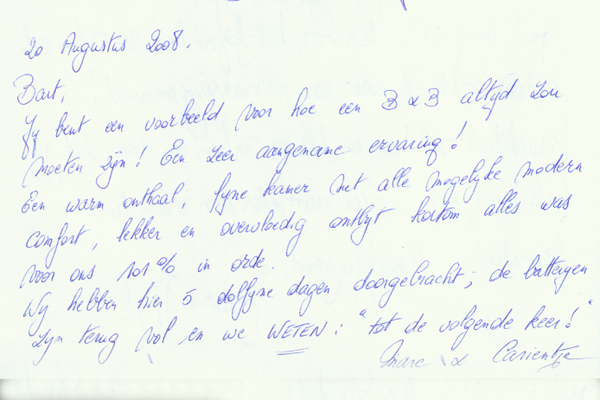 20 Augustus 2008.
Bart,
Jy bent een voorbeeld voor hoe een B & B altyd zou
moeten zyn! Een zeer aangename ervaring!
Een warm onthaal, fyne kamer met alle mogelyke modern
comfort, lekker en overvloedig ontbyt kortom alles was
voor ons 101% in orde.
Wy hebben hier 5 dolfyne dagen doorgebracht; de batteryen
zyn terug vol en we WETEN: "tot de volgende keer!"
Marc & Carientje